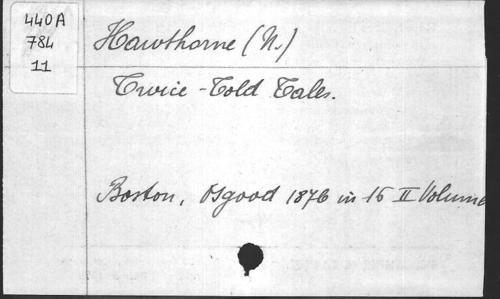 440A
784
11
Hawthorne (N.)
Twice-Told Tales.
Boston, Osgood 1876 in 16 II Volume